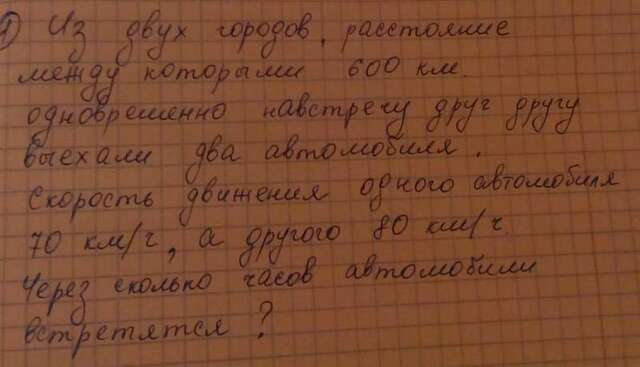 1) Из двух городов, расстояние
между которыми 600 км.
одновременно навстречу друг другу
выехали два автомобиля.
Скорость движения одного автомобиля
70 км/ч, а другого 80 км/ч.
Через сколько часов автомобили
встретятся?